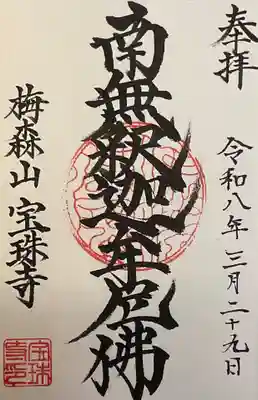 奉拝
令和八年三月二十九日
南無釈迦牟尼佛
梅森山宝珠寺